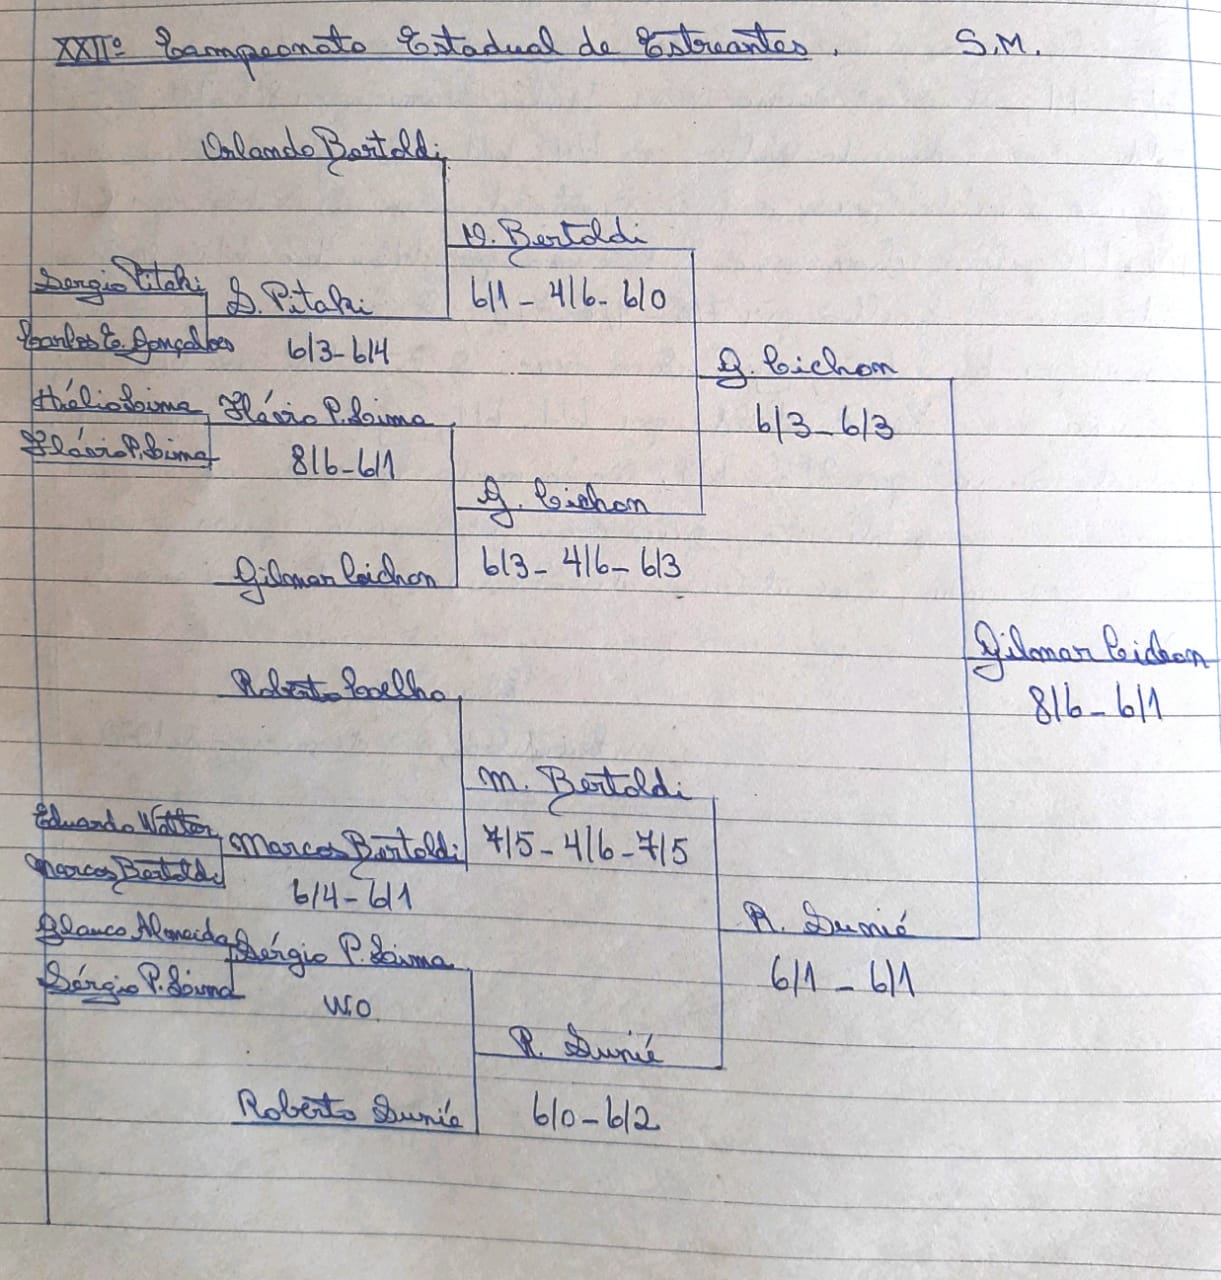 XXIIº Campeonato Estadual de Estreantes. S.M.
Orlando Bertoldi
O. Bertoldi
Sergio Pitaki
S. Pitaki
6/1 - 4/6 - 6/0
Carlos E. Gonçalves
6/3 - 6/4
G. Cichon
Hélio Lima
Flávio P. Lima
6/3 - 6/3
Flávio P. Lima
8/6 - 6/1
G. Cichon
6/3 - 4/6 - 6/3
Gilmar Cichon
Gilmar Cichon
8/6 - 6/1
Roberto Coelho
M. Bertoldi
Eduardo Walter
Marcos Bertoldi
7/5 - 4/6 - 7/5
Marcos Bertoldi
6/4 - 6/1
R. Dunié
Glauco Almeida
Sérgio P. Lima
6/1 - 6/1
Sérgio P. Lima
W.O.
R. Dunié
Roberto Dunié
6/0 - 6/2